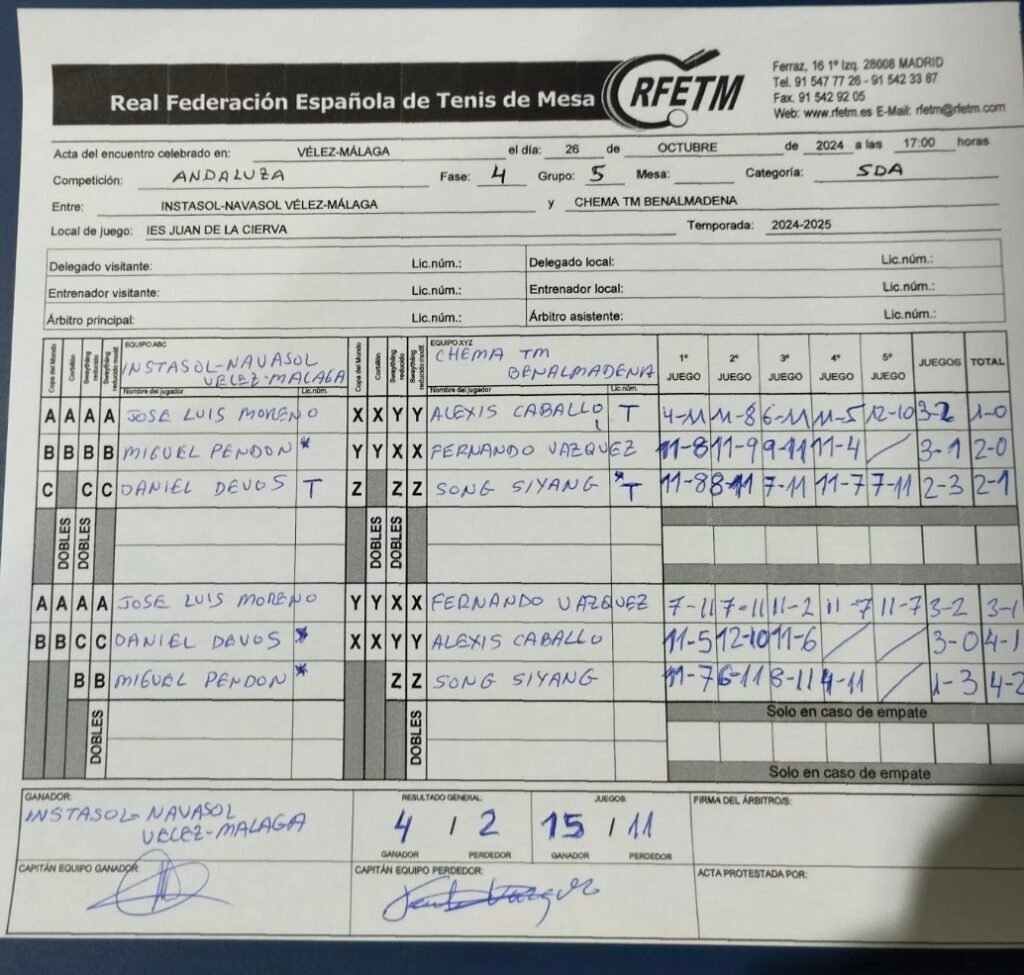 Real Federación Española de Tenis de Mesa
RFETM
Ferraz, 16 1º Izq. 28008 MADRID
Tel. 91 547 77 26 - 91 542 33 87
Fax. 91 542 92 05
Web: www.rfetm.es E-Mail: rfetm@rfetm.com
Acta del encuentro celebrado en: VÉLEZ-MÁLAGA el día: 26 de OCTUBRE de 2024 a las 17:00 horas
Competición: ANDALUZA Fase: 4 Grupo: 5 Mesa: Categoría: SDA
Entre: INSTASOL-NAVASOL VÉLEZ-MÁLAGA y CHEMA TM BENALMADENA
Local de juego: IES JUAN DE LA CIERVA Temporada: 2024-2025
Delegado visitante: Lic.núm.: Delegado local: Lic.núm.:
Entrenador visitante: Lic.núm.: Entrenador local: Lic.núm.:
Árbitro principal: Lic.núm.: Árbitro asistente: Lic.núm.:
Copa del Mundo Corbillón Swaythling reducido Swaythling reducido modif. EQUIPO ABC Copa del Mundo Corbillón Swaythling reducido Swaythling reducido modif. EQUIPO XYZ 1º JUEGO 2º JUEGO 3º JUEGO 4º JUEGO 5º JUEGO JUEGOS TOTAL
INSTASOL-NAVASOL CHEMA TM
VELEZ-MALAGA BENALMADENA
Nombre del jugador Lic.núm. Nombre del jugador Lic.núm.
A A A A JOSE LUIS MORENO X X Y Y ALEXIS CABALLO T 4-11 11-8 6-11 11-5 12-10 3-2 1-0
B B B B MIGUEL PENDON * Y Y X X FERNANDO VAZQUEZ 11-8 11-9 9-11 11-4 / 3-1 2-0
C C C DANIEL DEVOS T Z Z Z SONG SIYANG *T 11-8 8-11 7-11 11-7 7-11 2-3 2-1
DOBLES DOBLES DOBLES DOBLES
A A A A JOSE LUIS MORENO Y Y X X FERNANDO VAZQUEZ 7-11 7-11 11-2 11-7 11-7 3-2 3-1
B B C C DANIEL DEVOS * X X Y Y ALEXIS CABALLO 11-5 12-10 11-6 / / 3-0 4-1
B B MIGUEL PENDON * Z Z SONG SIYANG 11-7 6-11 8-11 4-11 / 1-3 4-2
Solo en caso de empate
DOBLES DOBLES
Solo en caso de empate
GANADOR: RESULTADO GENERAL: JUEGOS: FIRMA DEL ÁRBITRO/S:
INSTASOL-NAVASOL
VELEZ-MALAGA
4 / 2 15 / 11
GANADOR PERDEDOR GANADOR PERDEDOR
CAPITÁN EQUIPO GANADOR: CAPITÁN EQUIPO PERDEDOR: ACTA PROTESTADA POR: